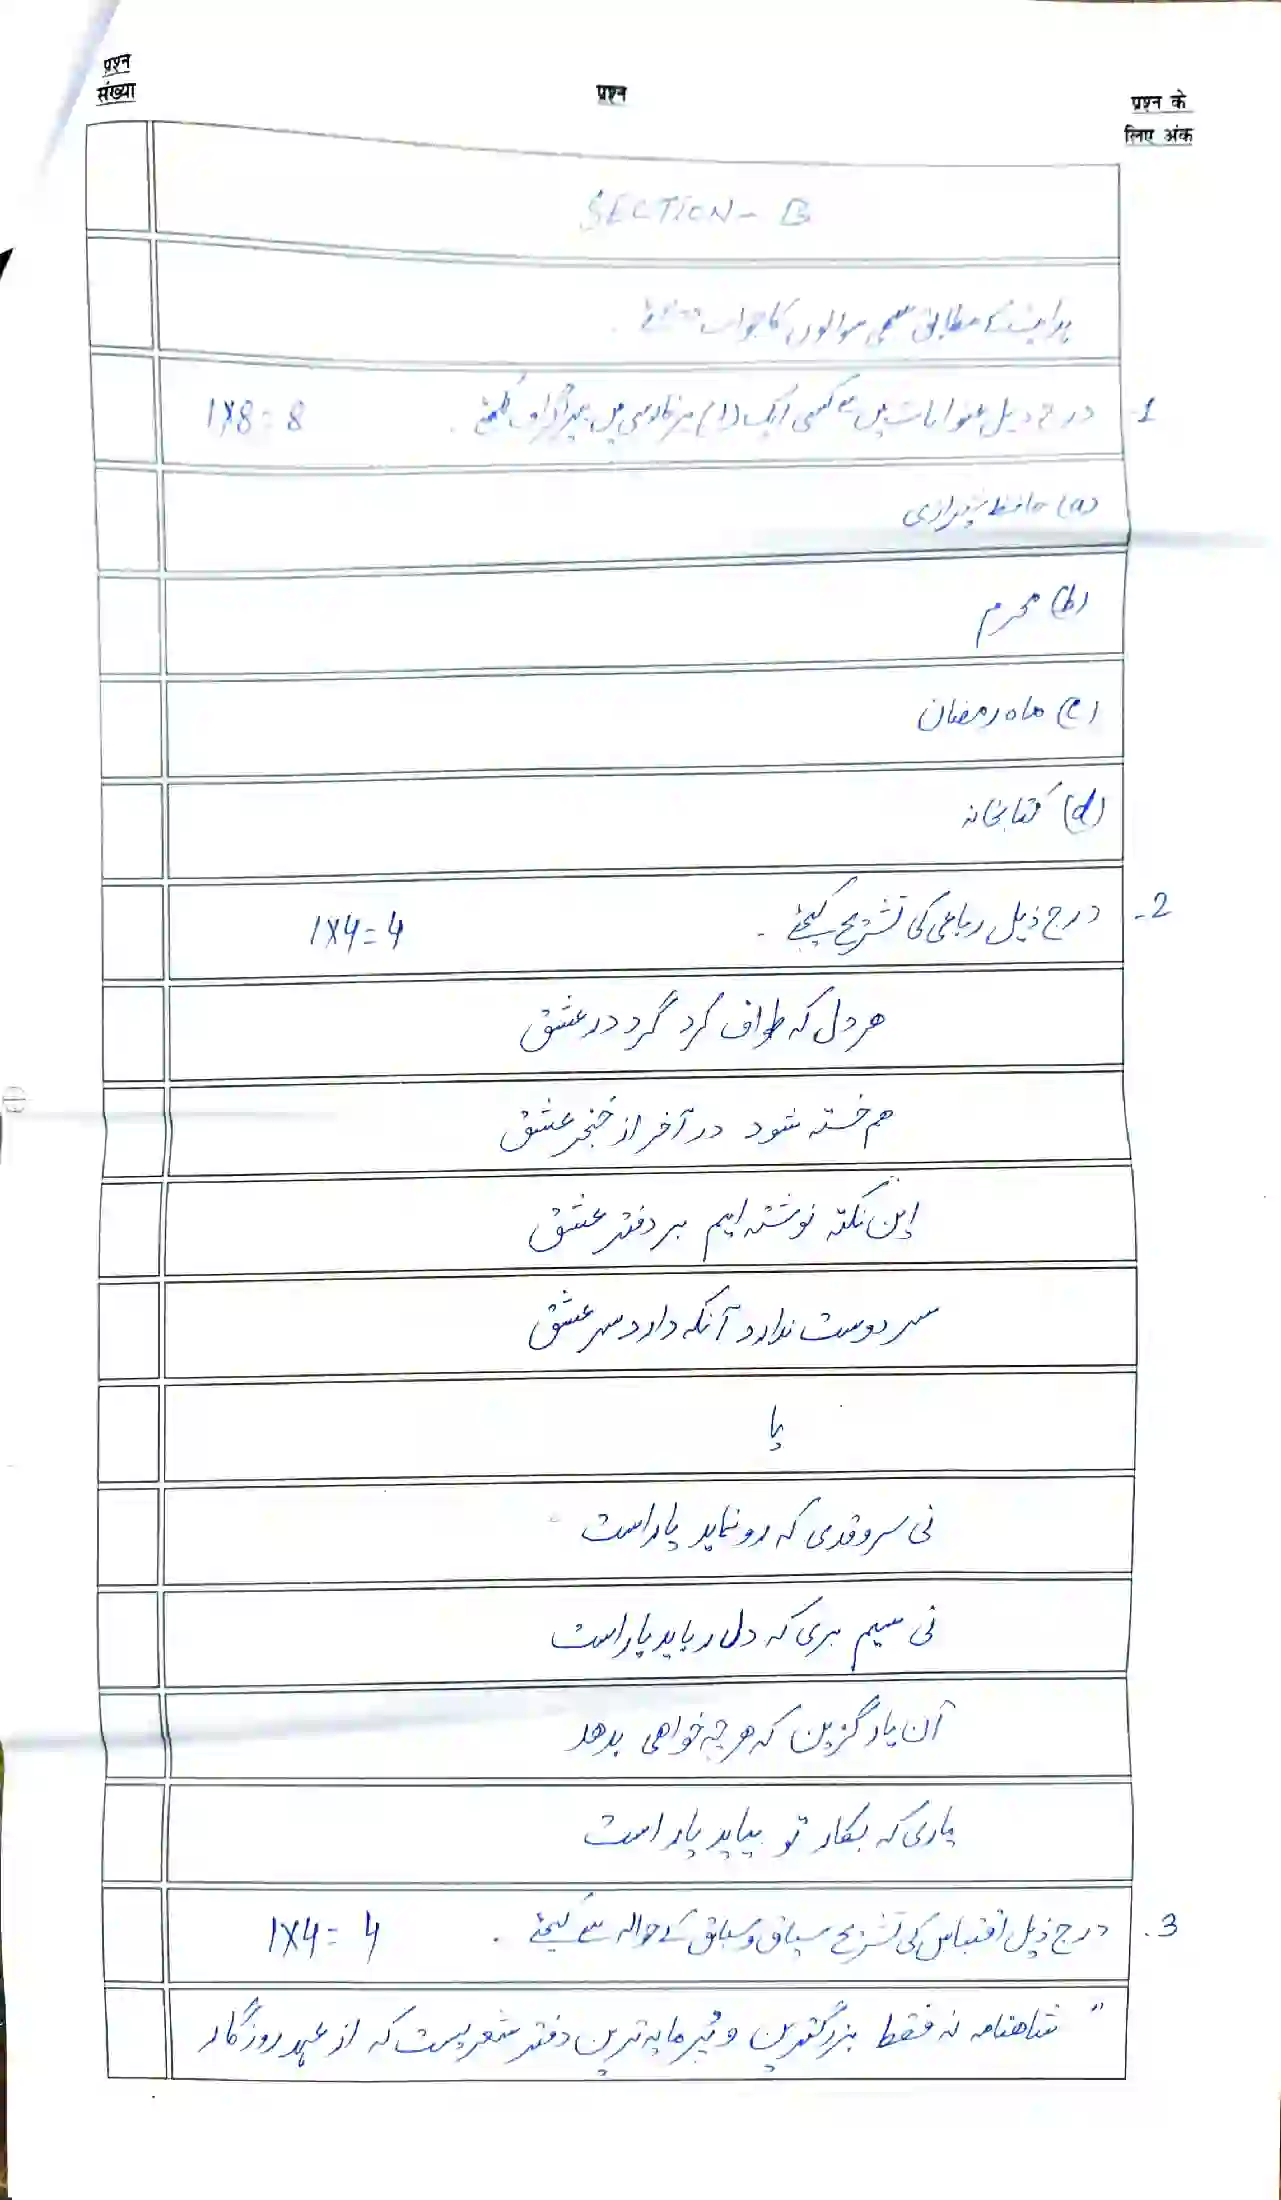 प्रश्न
संख्या
प्रश्न
प्रश्न के
लिए अंक
SECTION - B
ہدایت کے مطابق سبھی سوالوں کا جواب
1- درج ذیل عنوانات میں سے کسی ایک (1) پر فارسی میں پیراگراف لکھئے۔ 1x8=8
(a) حافظ شیرازی
(b) محرم
(c) ماہ رمضان
(d) کتابخانہ
2- درج ذیل رباعی کی تشریح کیجئے۔ 1x4=4
هر دل که طواف کرد گرد در عشق
هم خسته شود در آخر از خنجر عشق
این نکته نوشته ایم بر دفتر عشق
سر دوست ندارد آنکه دارد سر عشق
یا
نی سرو قدی که رو نماید یار است
نی سیم بری که دل رباید یار است
آن یار گزین که هر چه خواهی بدهد
یاری که بکار تو بیاید یار است
3. درج ذیل اقتباس کی تشریح سیاق و سباق کے حوالہ سے کیجئے۔ 1x4=4
" شاهنامه نه فقط بزرگترین و پُر مایه ترین دفتر شعریست که از عهد روزگار